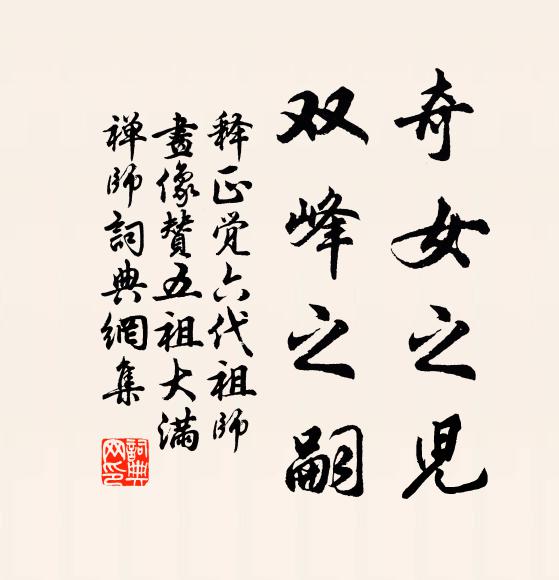 奇女之児
双峰之嗣
释正觉六代祖师
畫像贊五祖大滿
禅师詞典網集
詞典网印